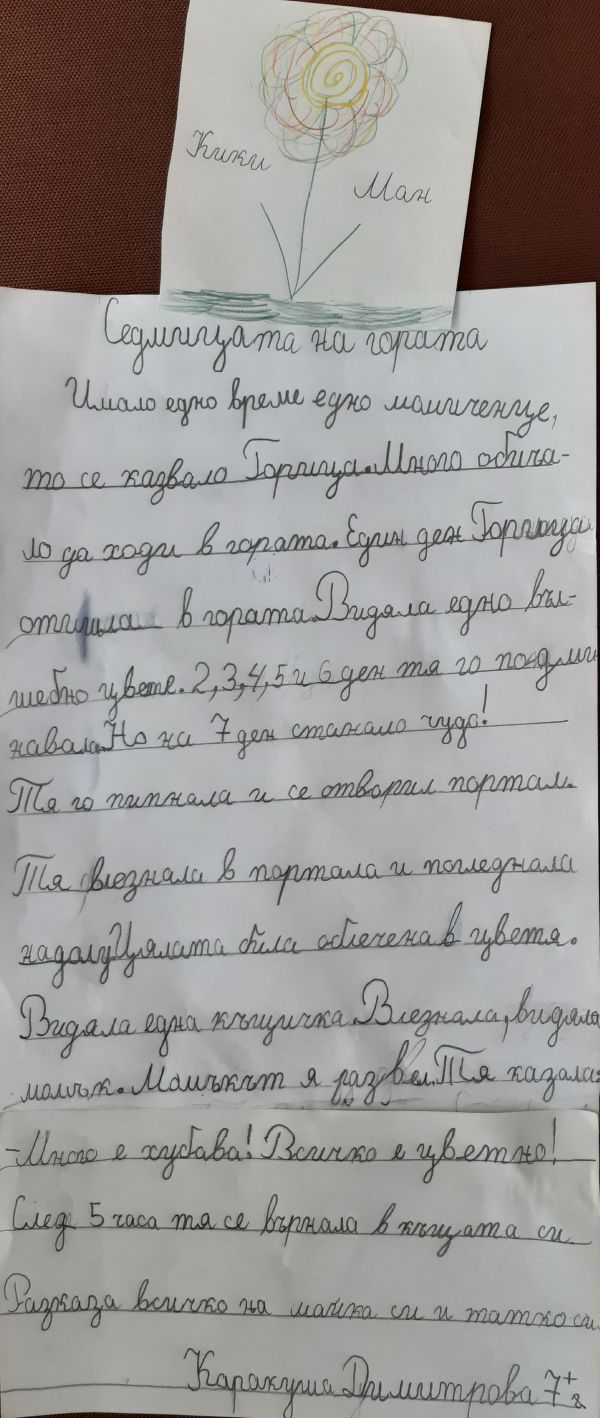 Кики
Ман
Седмицата на гората
Имало едно време едно момиченце,
то се казвало Горица. Много обича-
ло да ходи в гората. Един ден Горица
отишла в гората. Видяла едно въл-
шебно цвете. 2,3,4,5 и 6 ден тя го
навала. Но на 7 ден станало чудо!
Тя го пипнала и се отворил портал.
Тя влезнала в портала и погледнала
надолу. Цялата била облечена в цветя.
Видяла една къщичка. Влезнала, видяла
мамък. Мамъкът я развел. Тя казала:
-Много е хубава! Всичко е цветно!
След 5 часа тя се върнала в къщата си.
Разказа всичко на майка си и татко си.
Каракуша Димитрова 7+ г.